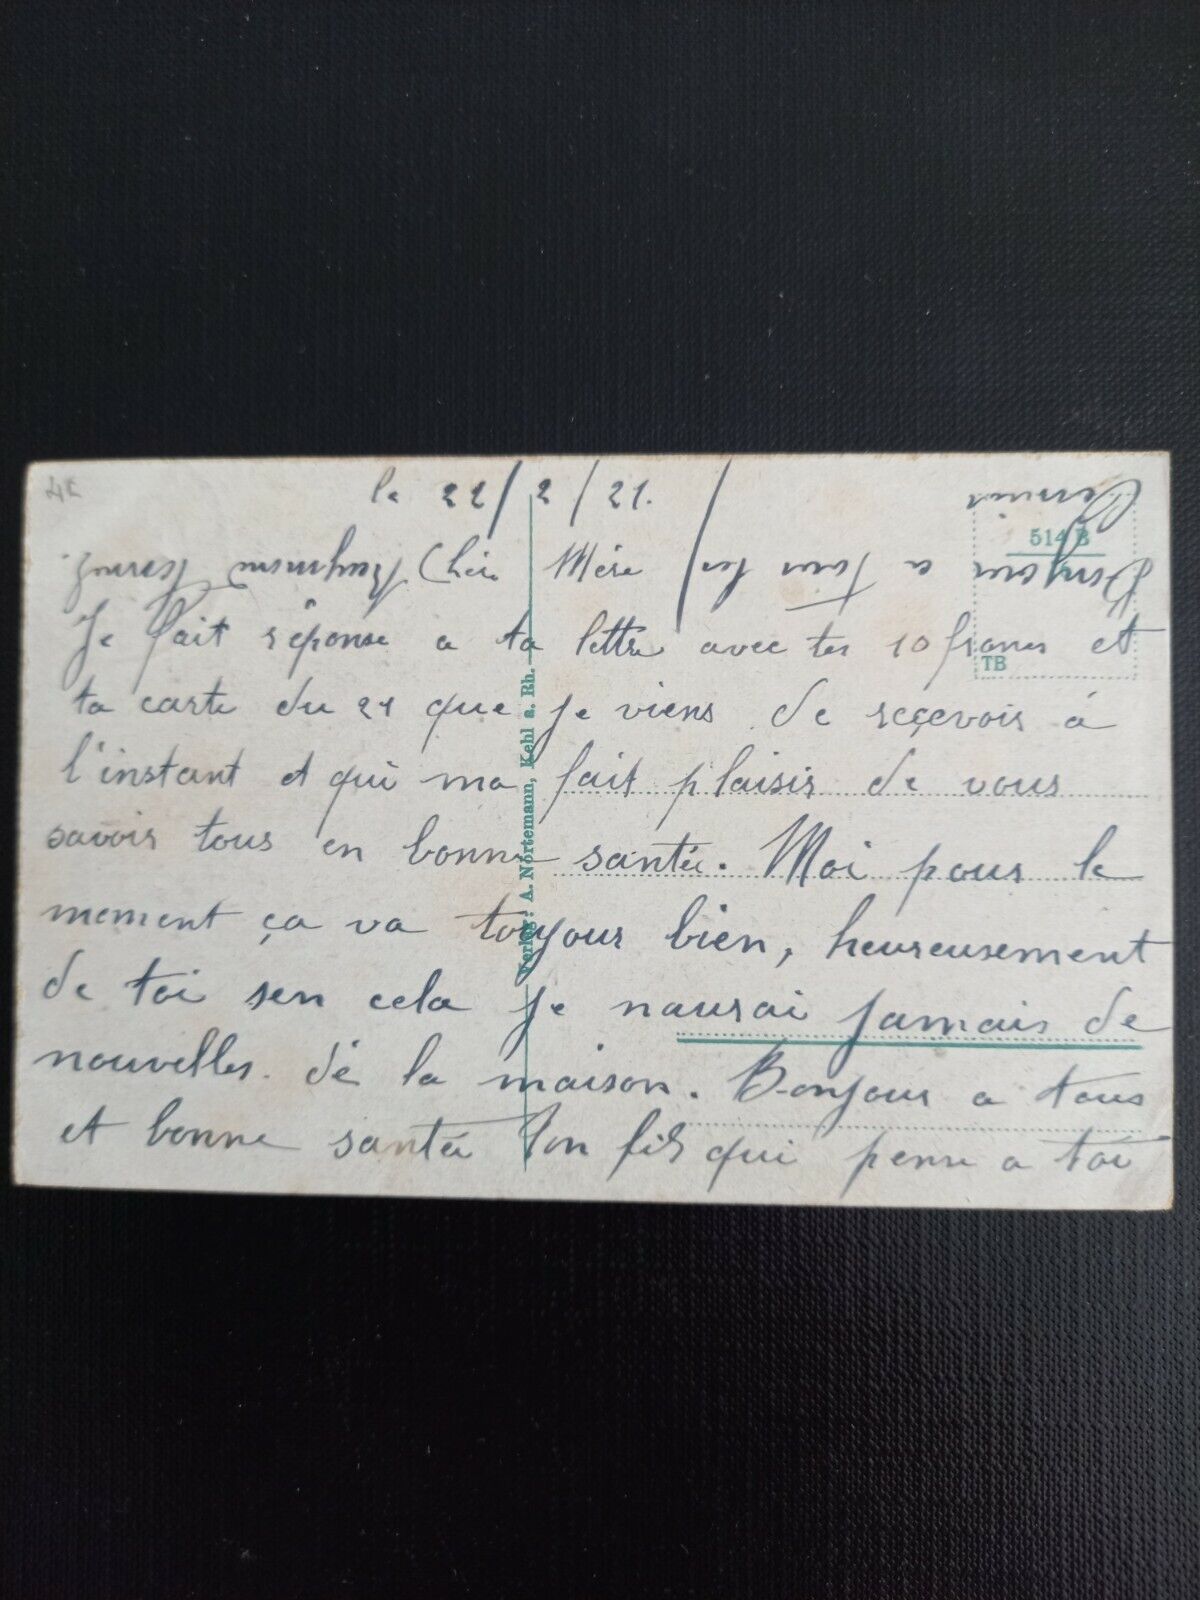 4€
le 22/2/21.
Chère Mère
Je fait réponse a ta lettre avec tes 10 francs et
ta carte du 21 que je viens de reçevoir à
l'instant et qui ma fait plaisir de vous
savoir tous en bonne santée. Moi pour le
moment ça va toujour bien, heureusement
de toi sen cela je naurai jamais de
nouvelles de la maison. Bonjour a tous
et bonne santée ton fils qui pense a toi
Raymond
Bonjour a tous les
514 B
TB
Verlag: A. Nörtemann, Kehl a. Rh.